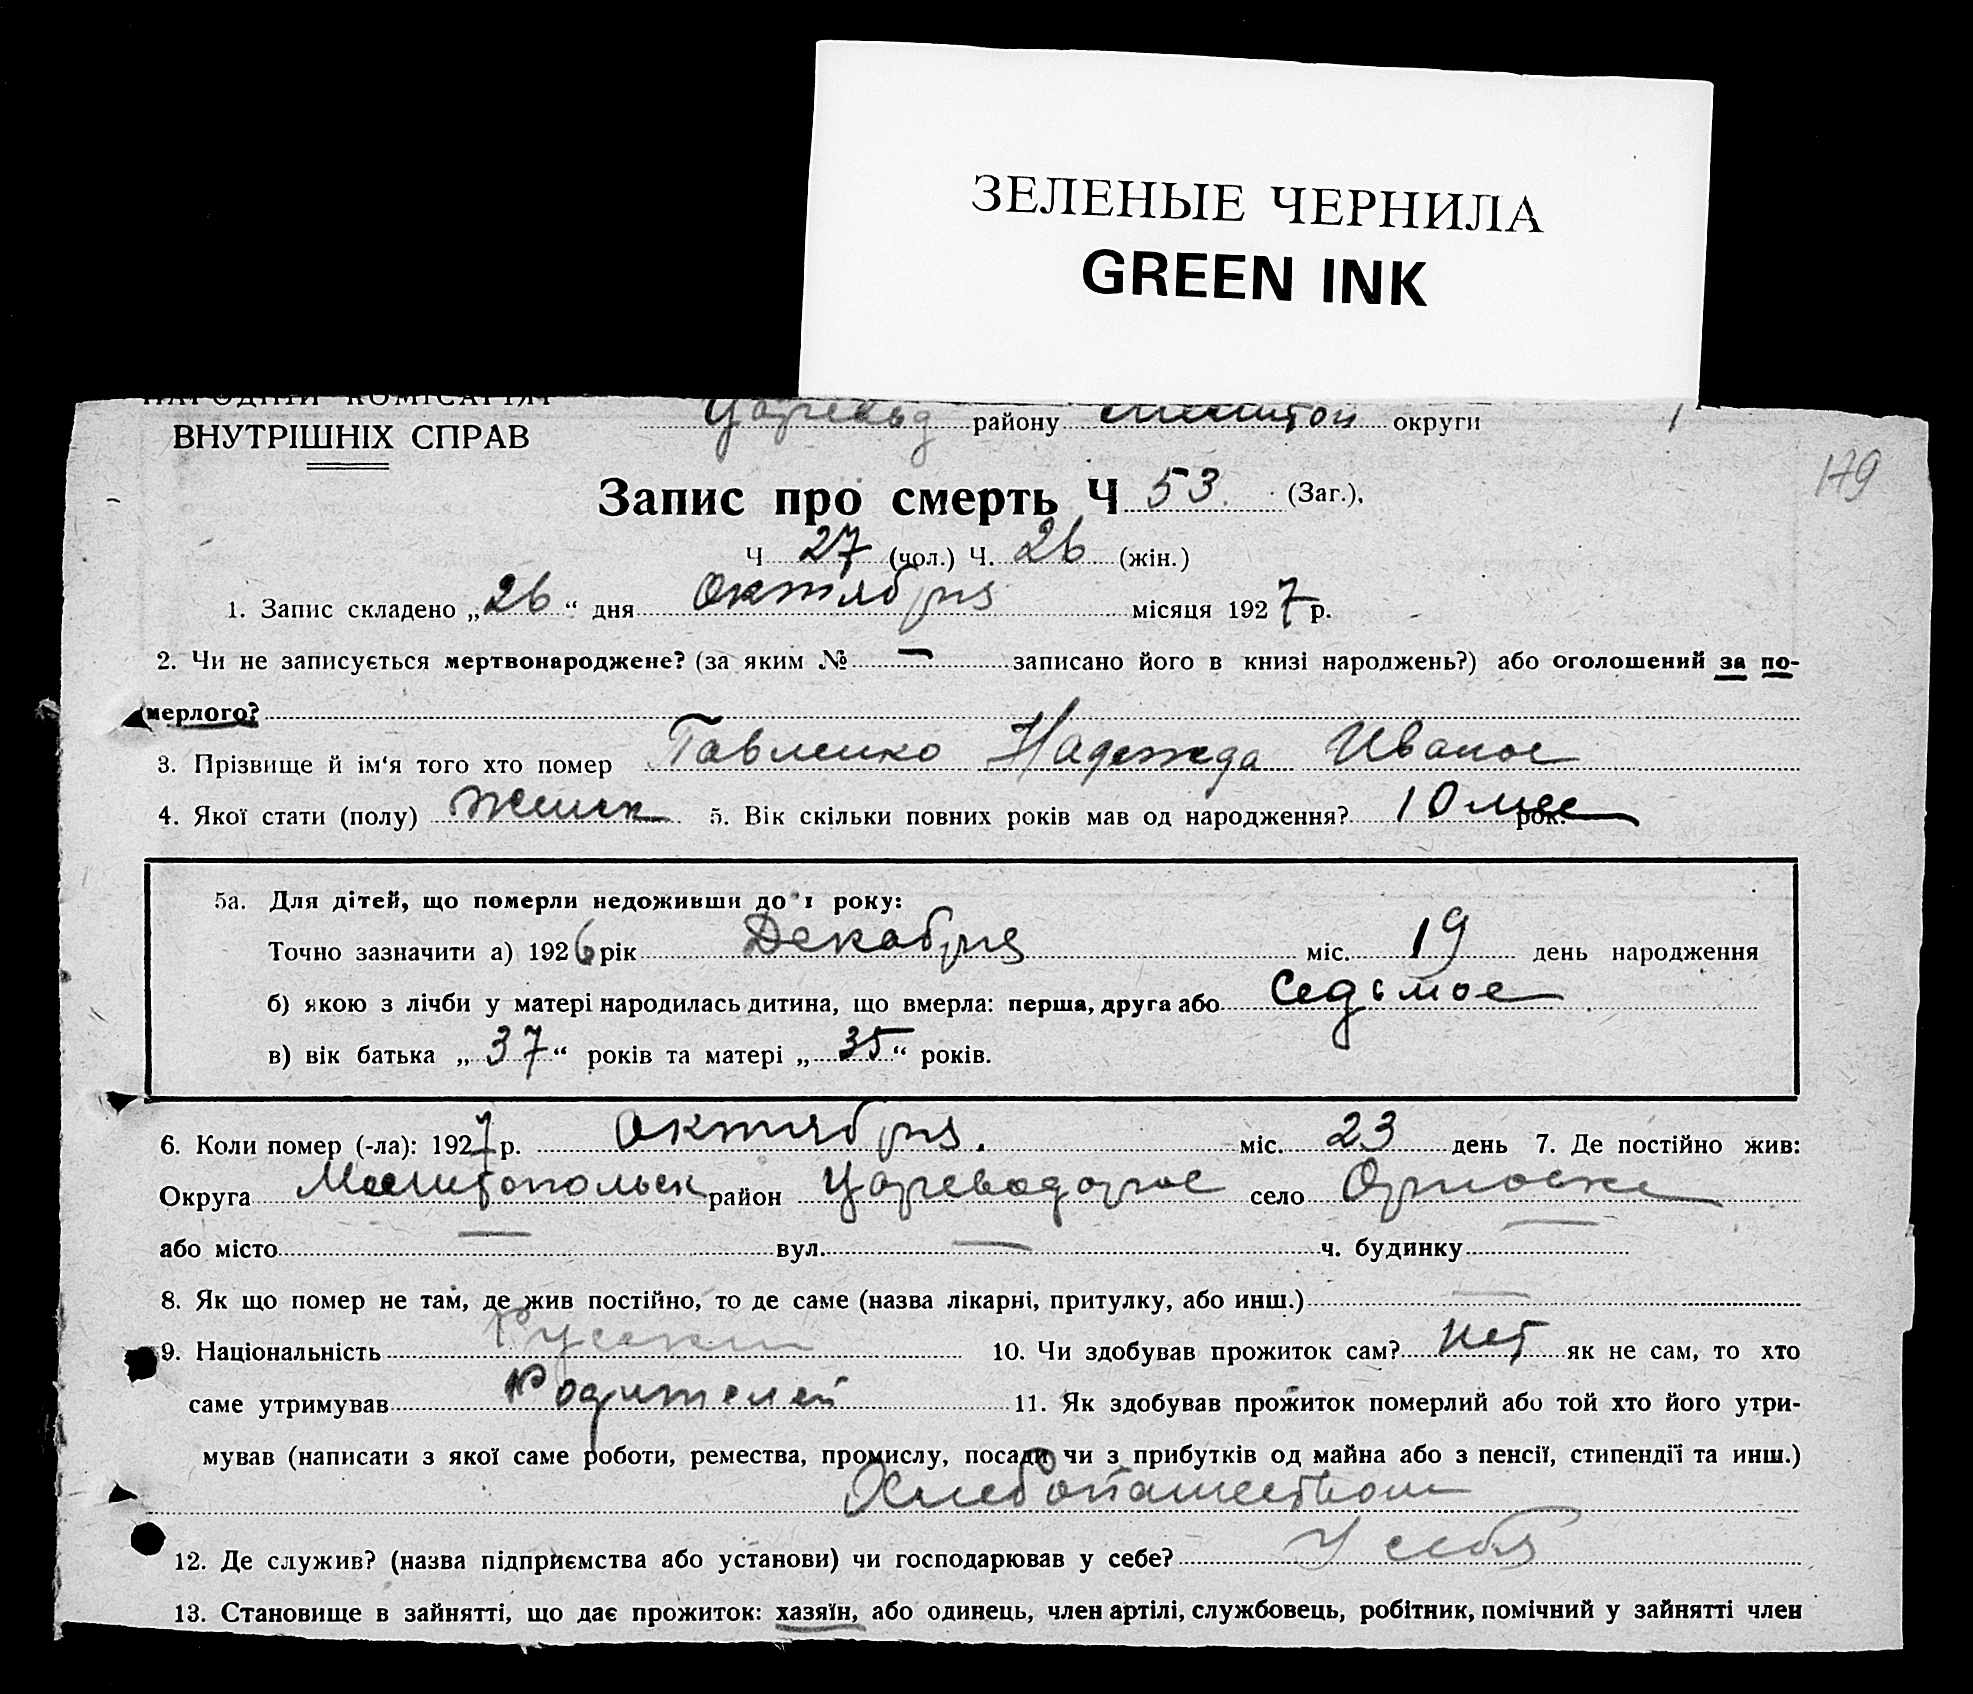 ЗЕЛЕНЫЕ ЧЕРНИЛА
GREEN INK
НАРОДНІЙ КОМІСАРІЯТ
ВНУТРІШНІХ СПРАВ
району округи
179
Запис про смерть Ч 53. (Заг.),
Ч 27 (чол.) Ч. 26 (жін.)
1. Запис складено „26“ дня Октября місяця 1927 р.
2. Чи не записується мертвонароджене? (за яким № — записано його в книзі народжень?) або оголошений за по-
мерлого?
3. Прізвище й ім‘я того хто помер Павленко Надежда Иванов
4. Якої стати (полу) женск 5. Вік скільки повних років мав од народження? 10 мес рок.
5а. Для дітей, що померли недоживши до 1 року:
Точно зазначити а) 1926 рік Декабря міс. 19 день народження
б) якою з лічби у матері народилась дитина, що вмерла: перша, друга або Седьмое
в) вік батька „37“ років та матері „35“ років.
6. Коли помер (-ла): 1927 р. Октября. міс. 23 день 7. Де постійно жив:
Округа Мелитопольск район село
або місто — вул. — ч. будинку —
8. Як що помер не там, де жив постійно, то де саме (назва лікарні, притулку, або инш.) —
9. Національність Русский 10. Чи здобував прожиток сам? Нет як не сам, то хто
саме утримував Родителей 11. Як здобував прожиток померлий або той хто його утри-
мував (написати з якої саме роботи, ремества, промислу, посади чи з прибутків од майна або з пенсії, стипендії та инш.)
Хлебопашеством
12. Де служив? (назва підприємства або установи) чи господарював у себе? У себя
13. Становище в зайнятті, що дає прожиток: хазяїн, або одинець, член артілі, службовець, робітник, помічний у зайнятті член